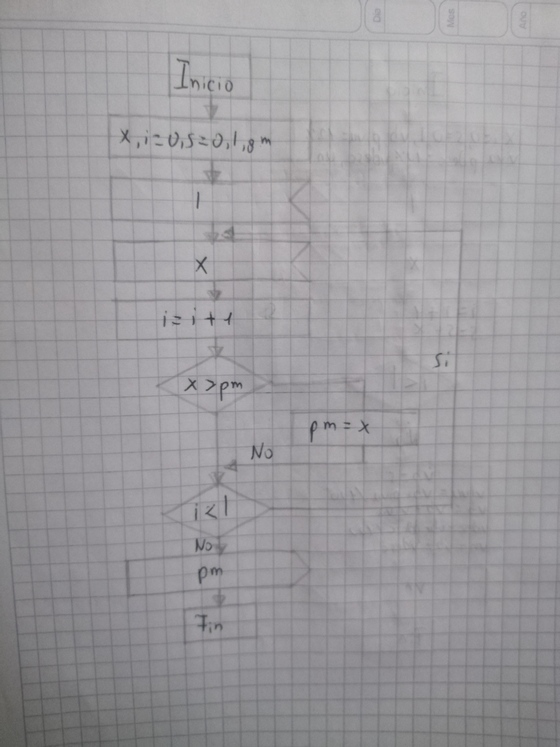 Día
Mes
Año
Inicio
x, i=0, s=0, 1, 8 m
l
x
i = i + 1
x > pm
Si
pm = x
No
i < l
No
pm
Fin